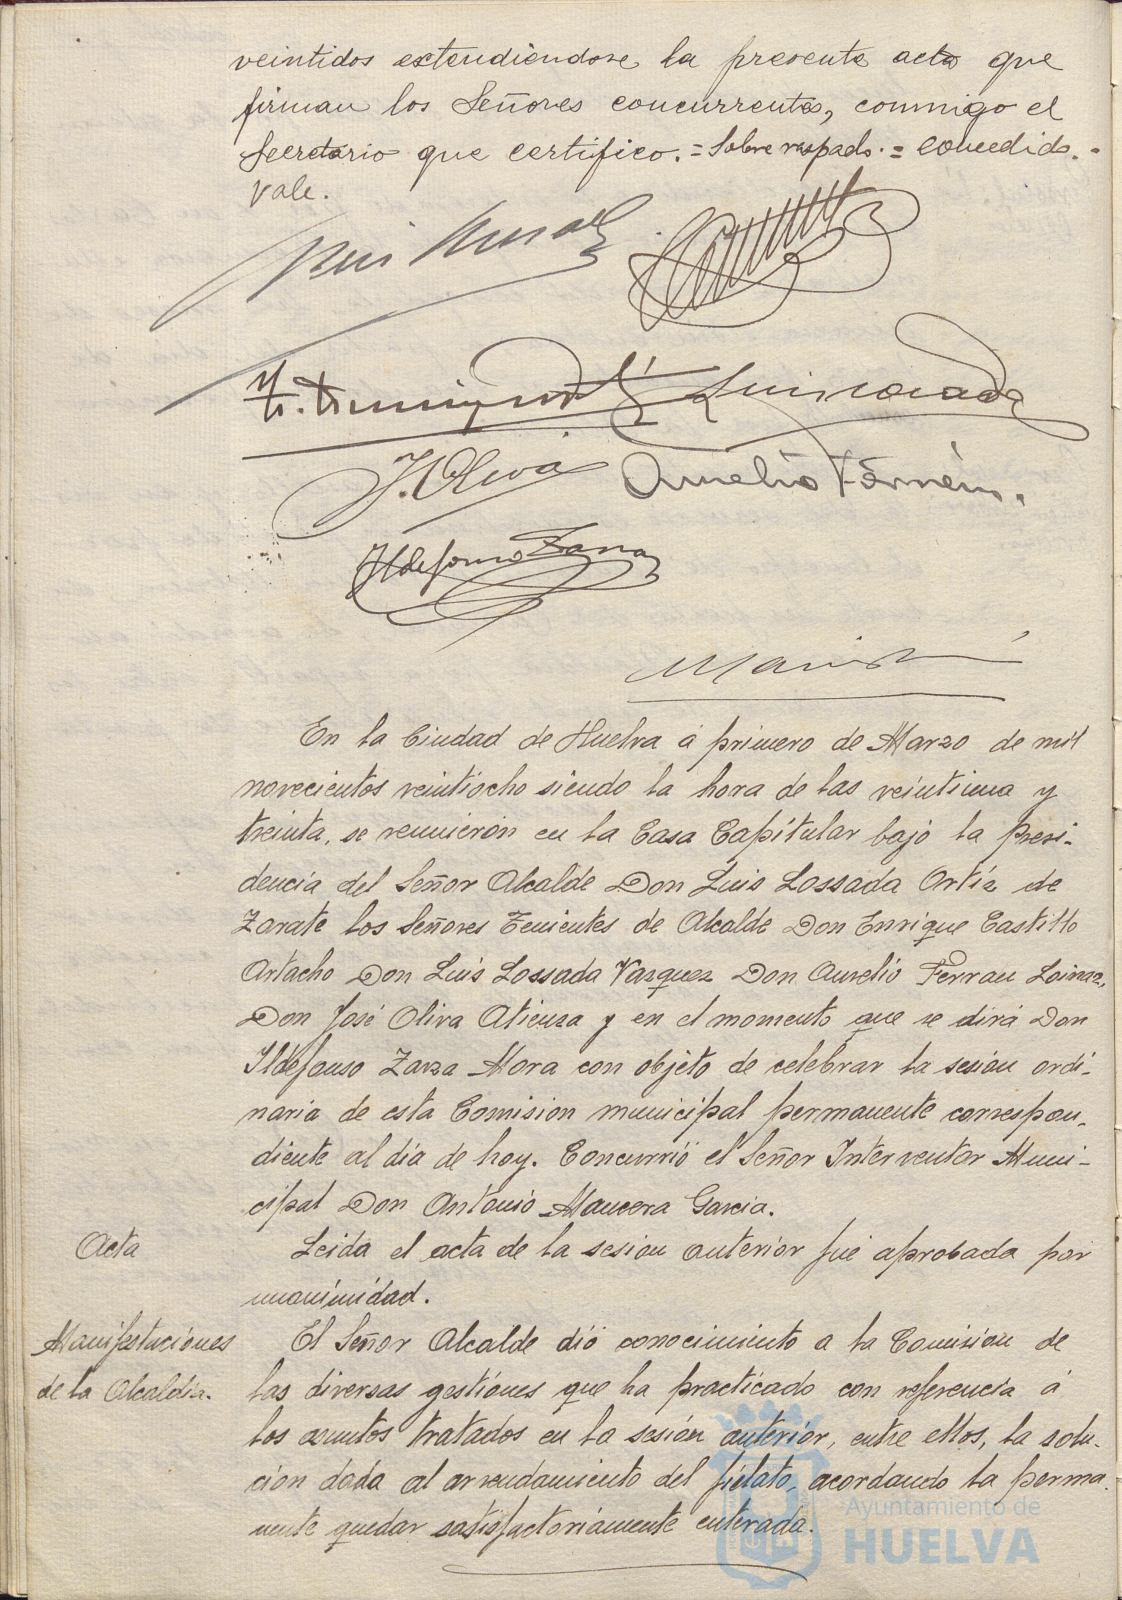 veintidos extendiendose la presente acta que
firman los Señores concurrentes, conmigo el
Secretario que certifico. = Sobre raspado. = concedido. =
Vale.
J. Oliva
Aurelio
Ildefonso Zarza
En la Ciudad de Huelva á primero de Marzo de mil
novecientos veintiocho siendo la hora de las veintiuna y
treinta, se reunieron en la Casa Capitular bajo la presi-
dencia del Señor Alcalde Don Luis Lossada Ortiz de
Zarate los Señores Tenientes de Alcalde Don Enrique Castillo
Artacho Don Luis Lossada Vazquez Don Aurelio Ferran Loinaz,
Don José Oliva Atienza y en el momento que se dirá Don
Ildefonso Zarza Mora con objeto de celebrar la sesion ordi-
naria de esta Comision municipal permanente correspon-
diente al dia de hoy. Concurrió el Señor Interventor Muni-
cipal Don Antonio Mancera Garcia.
Acta
Leida el acta de la sesion anterior fué aprobada por
unanimidad.
Manifestaciones
de la Alcaldia.
El Señor Alcalde dió conocimiento a la Comision de
las diversas gestiones que ha practicado con referencia á
los asuntos tratados en la sesión anterior, entre ellos, la solu-
cion dada al arrendamiento del fielato, acordando la perma-
nente quedar satisfactoriamente enterada.
Ayuntamiento de
HUELVA